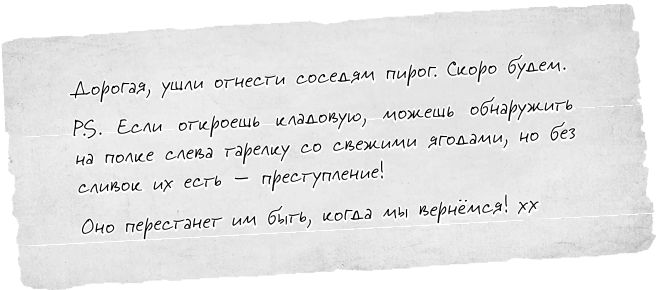 Дорогая, ушли отнести соседям пирог. Скоро будем.
PS. Если откроешь кладовую, можешь обнаружить
на полке слева тарелку со свежими ягодами, но без
сливок их есть – преступление!
Оно перестанет им быть, когда мы вернёмся! xx